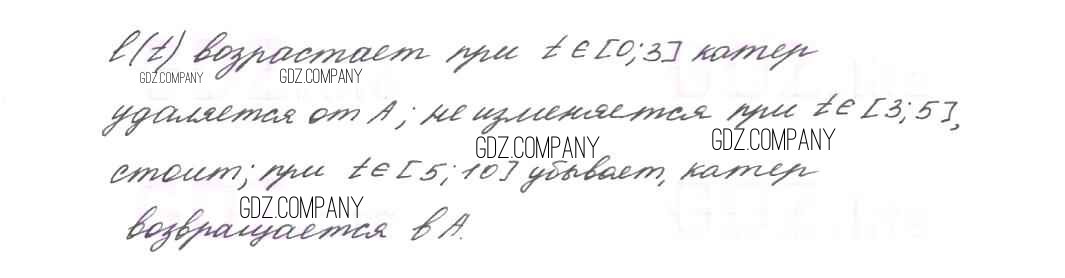 l(t) возрастает при t ∈ [0;3] катер
GDZ.COMPANY GDZ.COMPANY
удаляется от A; не изменяется при t ∈ [3;5],
GDZ.COMPANY GDZ.COMPANY
стоит; при t ∈ [5;10] убывает, катер
GDZ.COMPANY
возвращается в A.